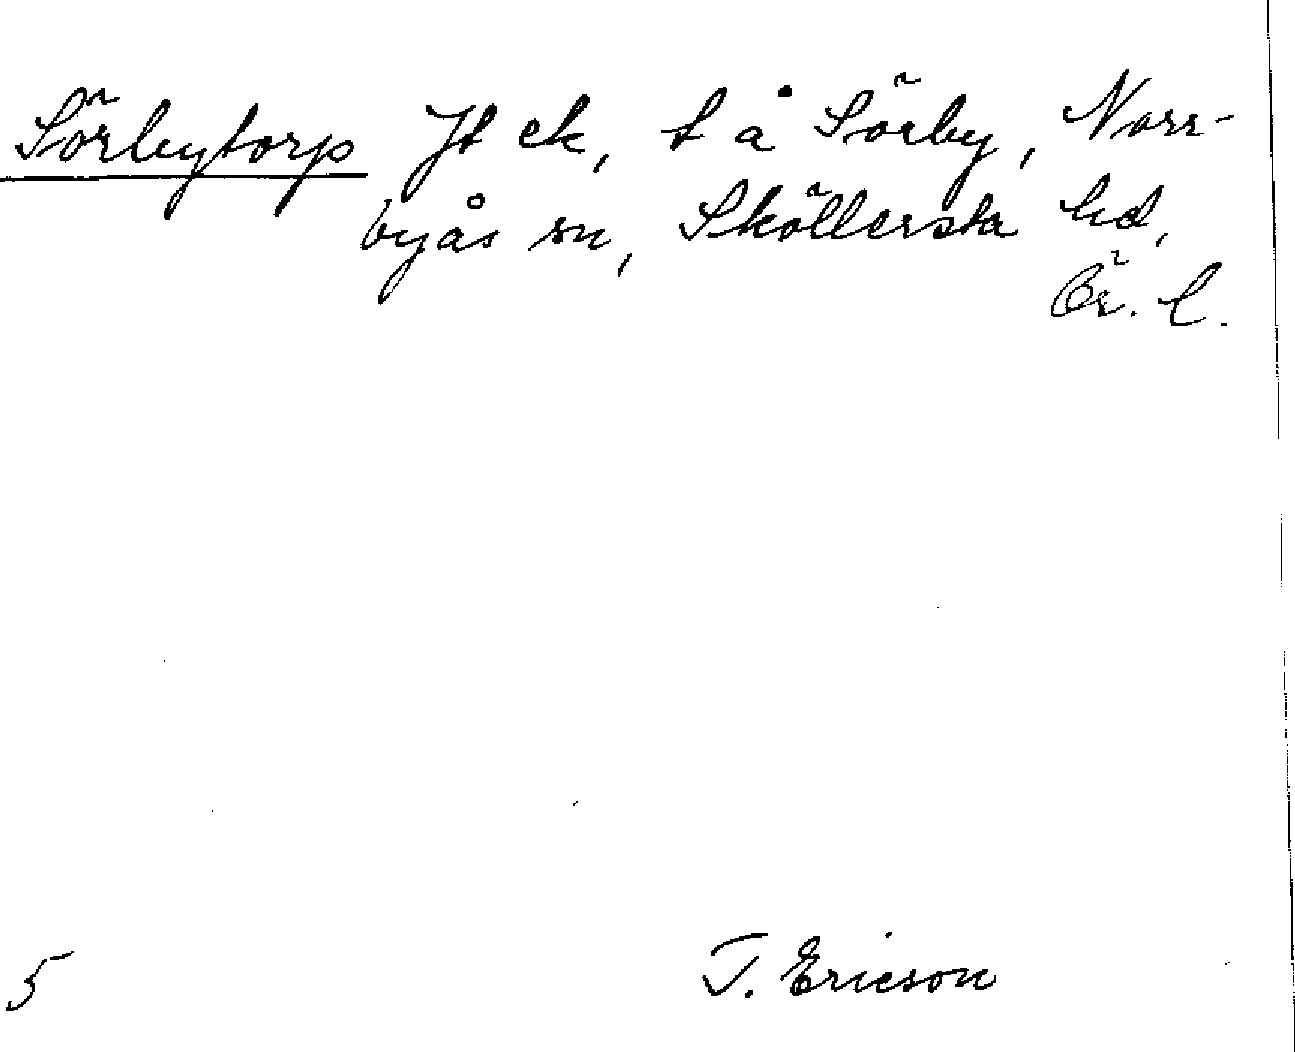 Sörbytorp Jt ek, t å Sörby, Norr-
byås sn, Sköllersta hd,
Ör. l.
5 T. Ericson